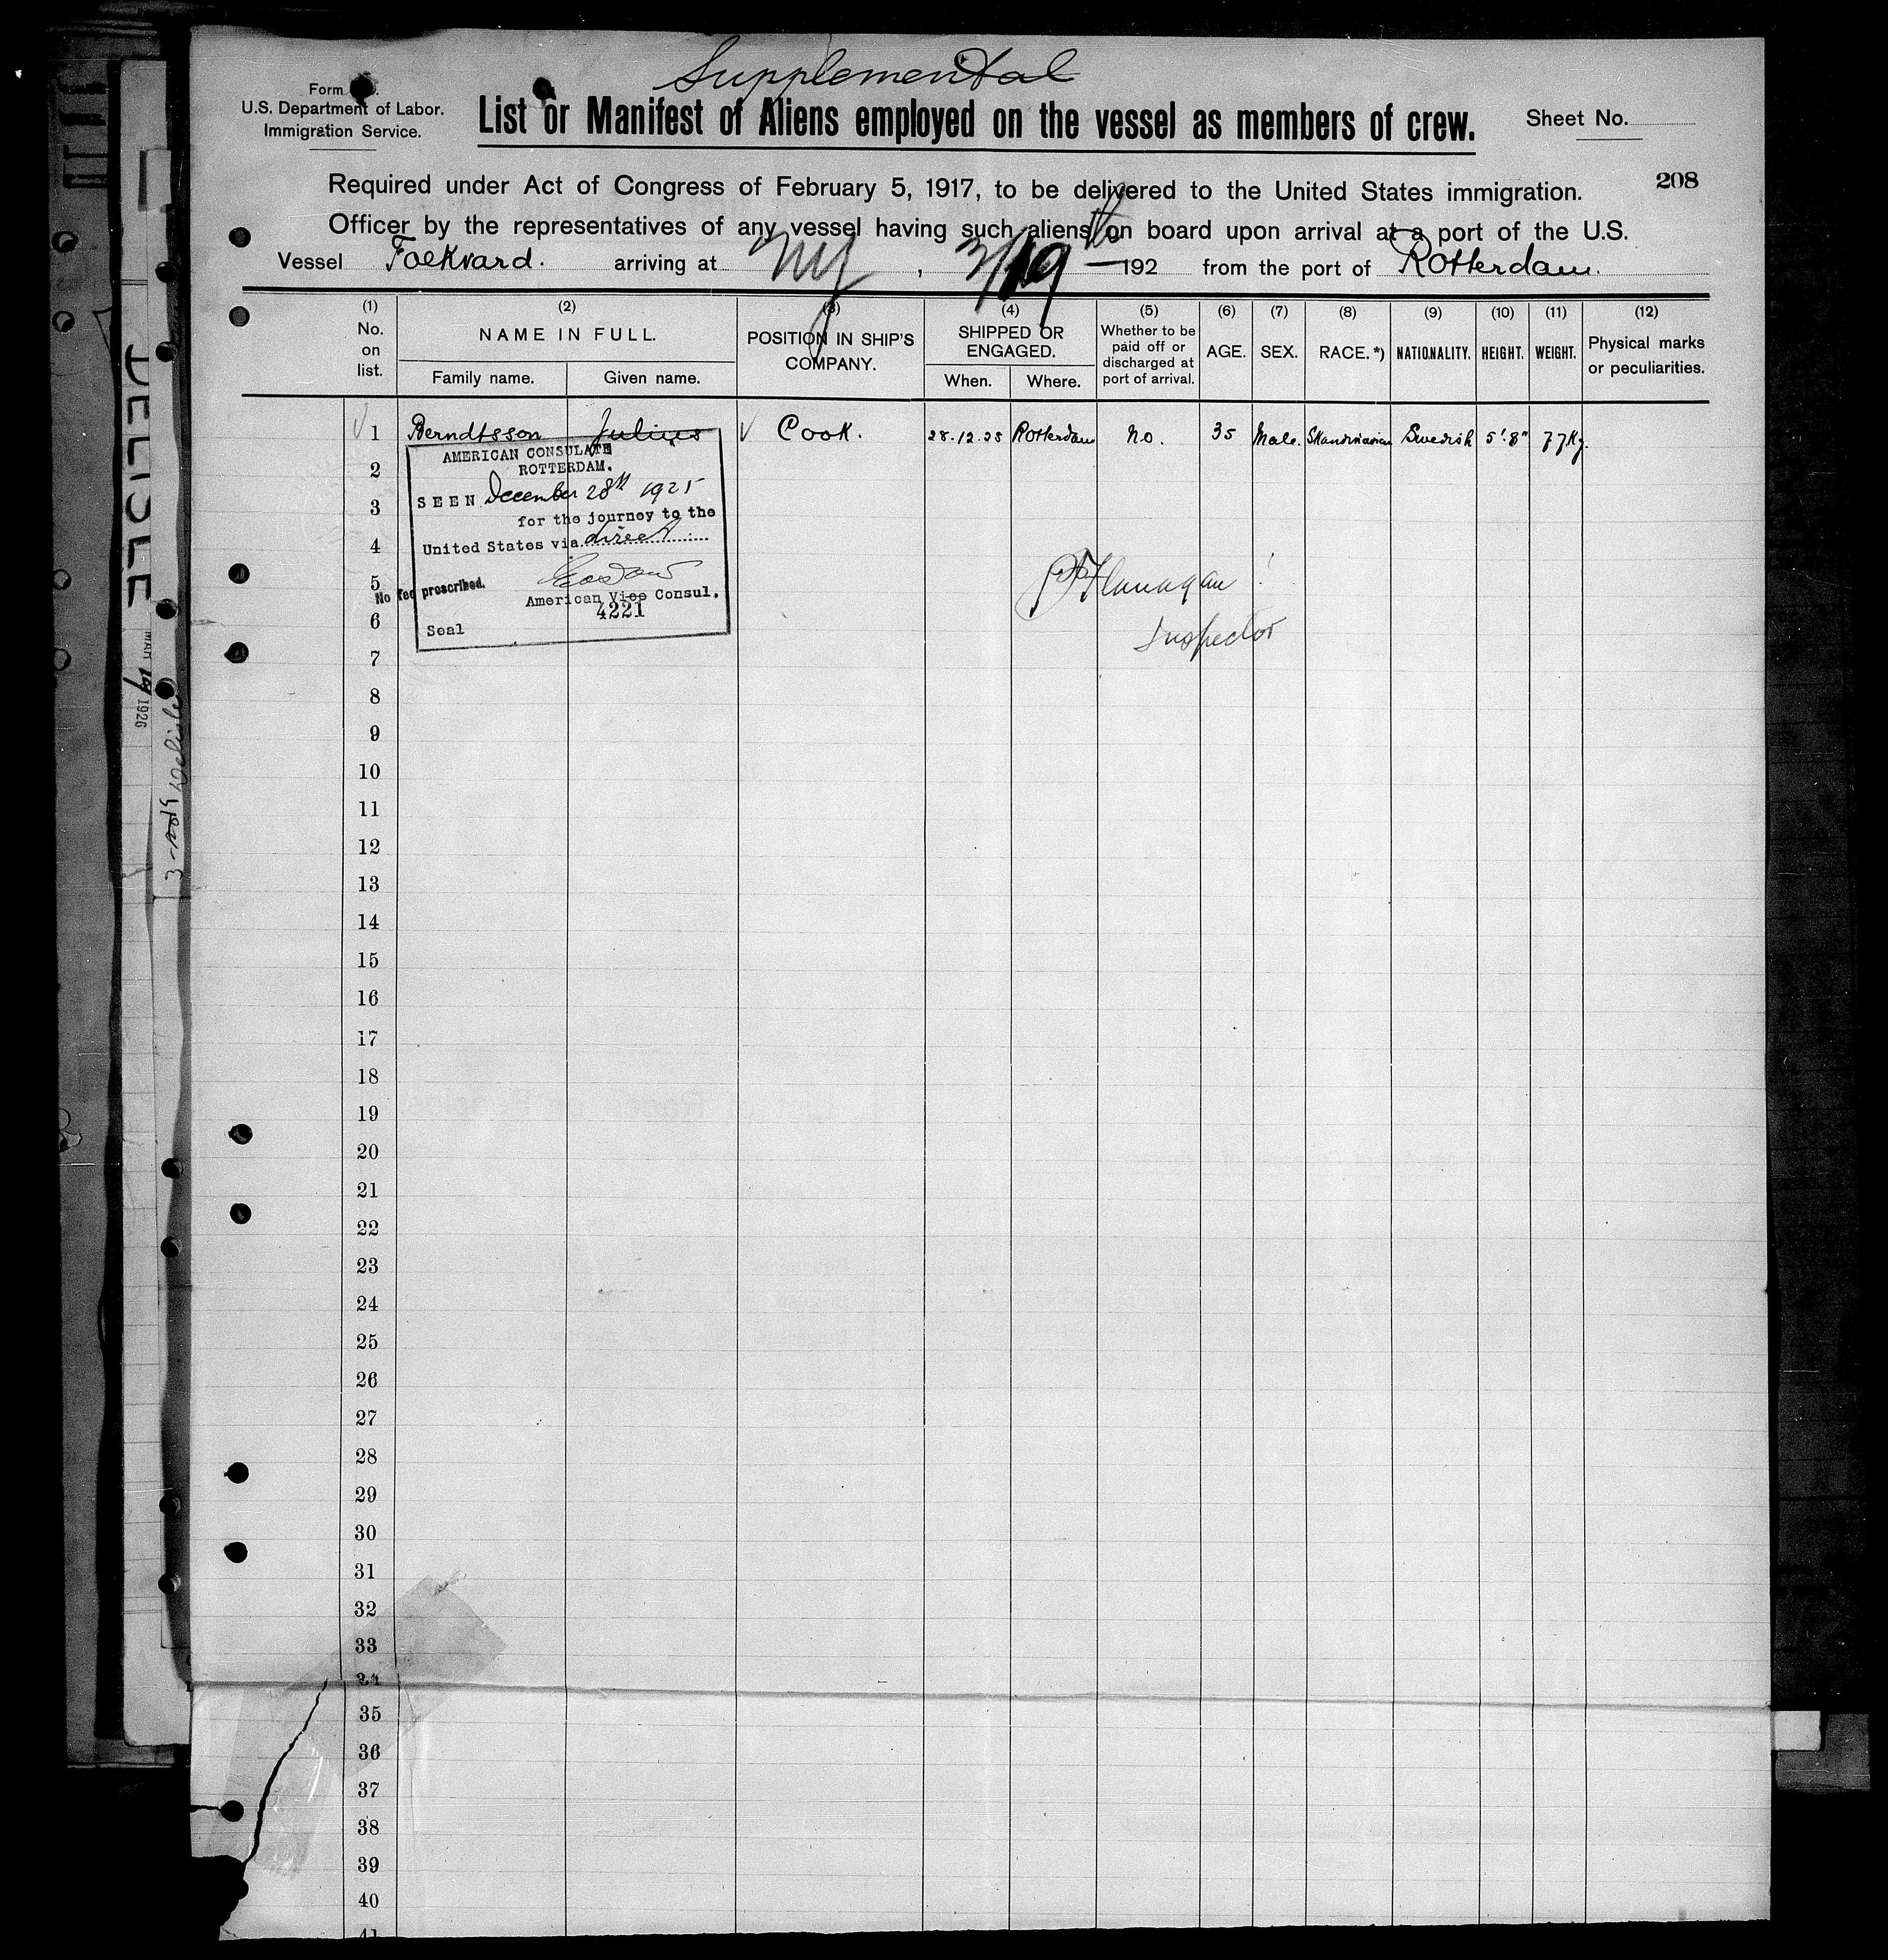 Supplemental
Form
U.S. Department of Labor.
Immigration Service.
List or Manifest of Aliens employed on the vessel as members of crew.
Sheet No.
Required under Act of Congress of February 5, 1917, to be delivered to the United States immigration.
208
Officer by the representatives of any vessel having such aliens on board upon arrival at a port of the U.S.
Vessel Folkvard. arriving at NY, 3/19th 192 from the port of Rotterdam.
(1) (2) (3) (4) (5) (6) (7) (8) (9) (10) (11) (12)
No. on list.
NAME IN FULL.
Family name. Given name.
POSITION IN SHIP'S COMPANY.
SHIPPED OR ENGAGED.
When. Where.
Whether to be paid off or discharged at port of arrival.
AGE. SEX. RACE. *) NATIONALITY. HEIGHT. WEIGHT.
Physical marks or peculiarities.
1 Berndtsson Julius Cook. 28.12.25 Rotterdam No. 35 Male. Skandinavian Swedish 5'.8" 77 Kg.
AMERICAN CONSULATE
ROTTERDAM.
SEEN December 28th 1925
for the journey to the
United States via direct
No fee prescribed.
American Vice Consul.
4221
Seal
Flanagan
Inspector
2
3
4
5
6
7
8
9
10
11
12
13
14
15
16
17
18
19
20
21
22
23
24
25
26
27
28
29
30
31
32
33
34
35
36
37
38
39
40
41
DELISLE
MAR 19 1926